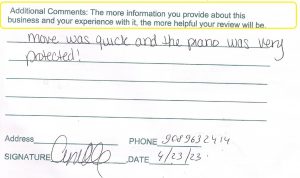 Additional Comments: The more information you provide about this
business and your experience with it, the more helpful your review will be.
move was quick and the piano was very
protected!
Address
PHONE 9089632414
SIGNATURE DATE 4/23/23